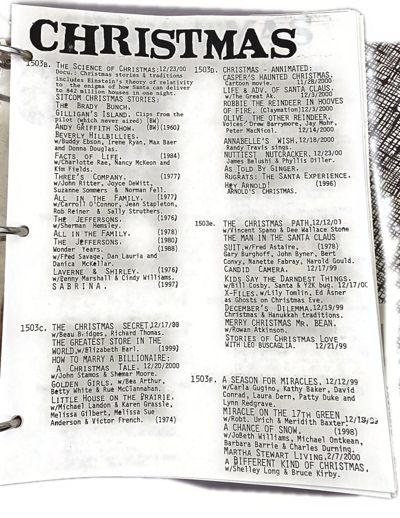 CHRISTMAS
1503B. THE SCIENCE OF CHRISTMAS:12/23/00
Docu.: Christmas stories & traditions
includes Einstein's theory of relativity
to the enigma of how Santa can deliver
to 842 million houses in one night.
SITCOM CHRISTMAS STORIES:
THE BRADY BUNCH.
GILLIGAN'S ISLAND. Clips from the
pilot (which never aired) BW
ANDY GRIFFITH SHOW. (BW)(1960)
BEVERLY HILLBILLIES.
w/Buddy Ebson, Irene Ryan, Max Baer
and Donna Douglas.
FACTS OF LIFE. (1984)
w/Charlotte Rae, Nancy McKeon and
Kim Fields.
THREE'S COMPANY. (1977)
w/John Ritter, Joyce DeWitt,
Suzanne Sommers & Norman Fell.
ALL IN THE FAMILY. (1977)
w/Carroll O'Connor, Jean Stapleton,
Rob Reiner & Sally Struthers.
THE JEFFERSONS. (1976)
w/Sherman Hemsley.
ALL IN THE FAMILY. (1978)
THE JEFFERSONS. (1980)
Wonder Years. (1988)
w/Fred Savage, Dan Lauria and
Danica McKellar.
LAVERNE & SHIRLEY. (1976)
w/Penny Marshall & Cindy Williams.
SABRINA. (1997)
1503C. THE CHRISTMAS SECRET.12/17/00
w/Beau Bridges, Richard Thomas.
THE GREATEST STORE IN THE
WORLD.w/Elizabeth Earl. (1999)
HOW TO MARRY A BILLIONAIRE:
A CHRISTMAS TALE. 12/20/2000
w/John Stamos & Shemar Moore.
GOLDEN GIRLS. w/Bea Arthur,
Betty White & Rue McClanahan.
LITTLE HOUSE ON THE PRAIRIE.
w/Michael Landon & Karen Grassle,
Melissa Gilbert, Melissa Sue
Anderson & Victor French. (1974)
1503D. CHRISTMAS - ANNIMATED:
CASPER'S HAUNTED CHRISTMAS.
Cartoon movie. 11/28/2000
LIFE & ADV. OF SANTA CLAUS.
w/The Great Ak. 12/3/2000
ROBBIE THE REINDEER IN HOOVES
OF FIRE. (Claymation)12/3/2000
OLIVE, THE OTHER REINDEER.
Voices: Drew Barrymore, Jay Mohr,
Peter MacNicol. 12/14/2000
ANNABELLE'S WISH.12/18/2000
Randy Travis sings.
NUTTIEST NUTCRACKER.12/23/00
James Belushi & Phyllis Diller.
AS TOLD BY GINGER.
RUGRATS: THE SANTA EXPERIENCE.
HEY ARNOLD! (1996)
ARNOLD'S CHRISTMAS.
1503E. THE CHRISTMAS PATH.12/12/03
w/Vincent Spano & Dee Wallace Stone
THE MAN IN THE SANTA CLAUS
SUIT.w/Fred Astaire. (1978)
Gary Burghoff, John Byner, Bert
Convy, Nanette Fabray, Harold Gould.
CANDID CAMERA. 12/17/99
KIDS SAY THE DARNDEST THINGS.
w/Bill Cosby. Santa & Y2K bug. 12/17/00
X-FILES.w/Lily Tomlin, Ed Asner
as Ghosts on Christmas Eve.
DECEMBER'S DILEMMA.12/19/99
Christmas & Hanukkah traditions.
MERRY CHRISTMAS MR. BEAN.
w/Rowan Atkinson.
STORIES OF CHRISTMAS LOVE
WITH LEO BUSCAGLIA. 12/21/99
1503F. A SEASON FOR MIRACLES. 12/12/99
w/Carla Gugino, Kathy Baker, David
Conrad, Laura Dern, Patty Duke and
Lynn Redgrave.
MIRACLE ON THE 17TH GREEN
w/Robt. Urich & Meredith Baxter.
A CHANCE OF SNOW. (1998)
w/JoBeth Williams, Michael Ontkean,
Barbara Barrie & Charles Durning.
MARTHA STEWART LIVING.2/7/2000
A DIFFERENT KIND OF CHRISTMAS.
w/Shelley Long & Bruce Kirby.